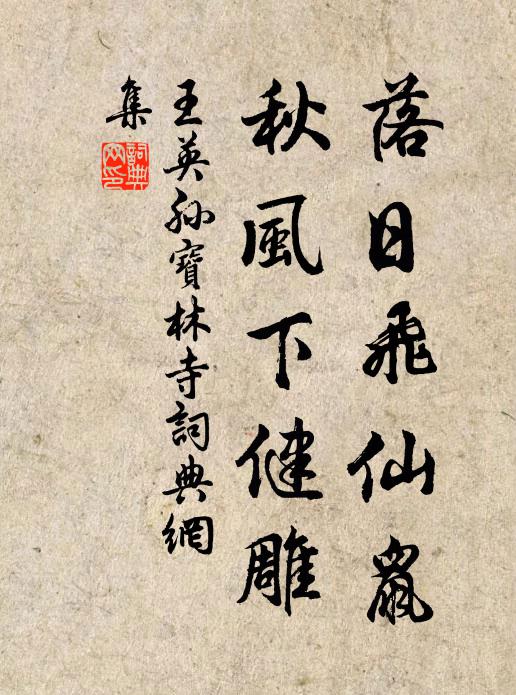 落日飛仙鼠
秋風下健雕
王英孫寶林寺詞典網
集
詞典
網印